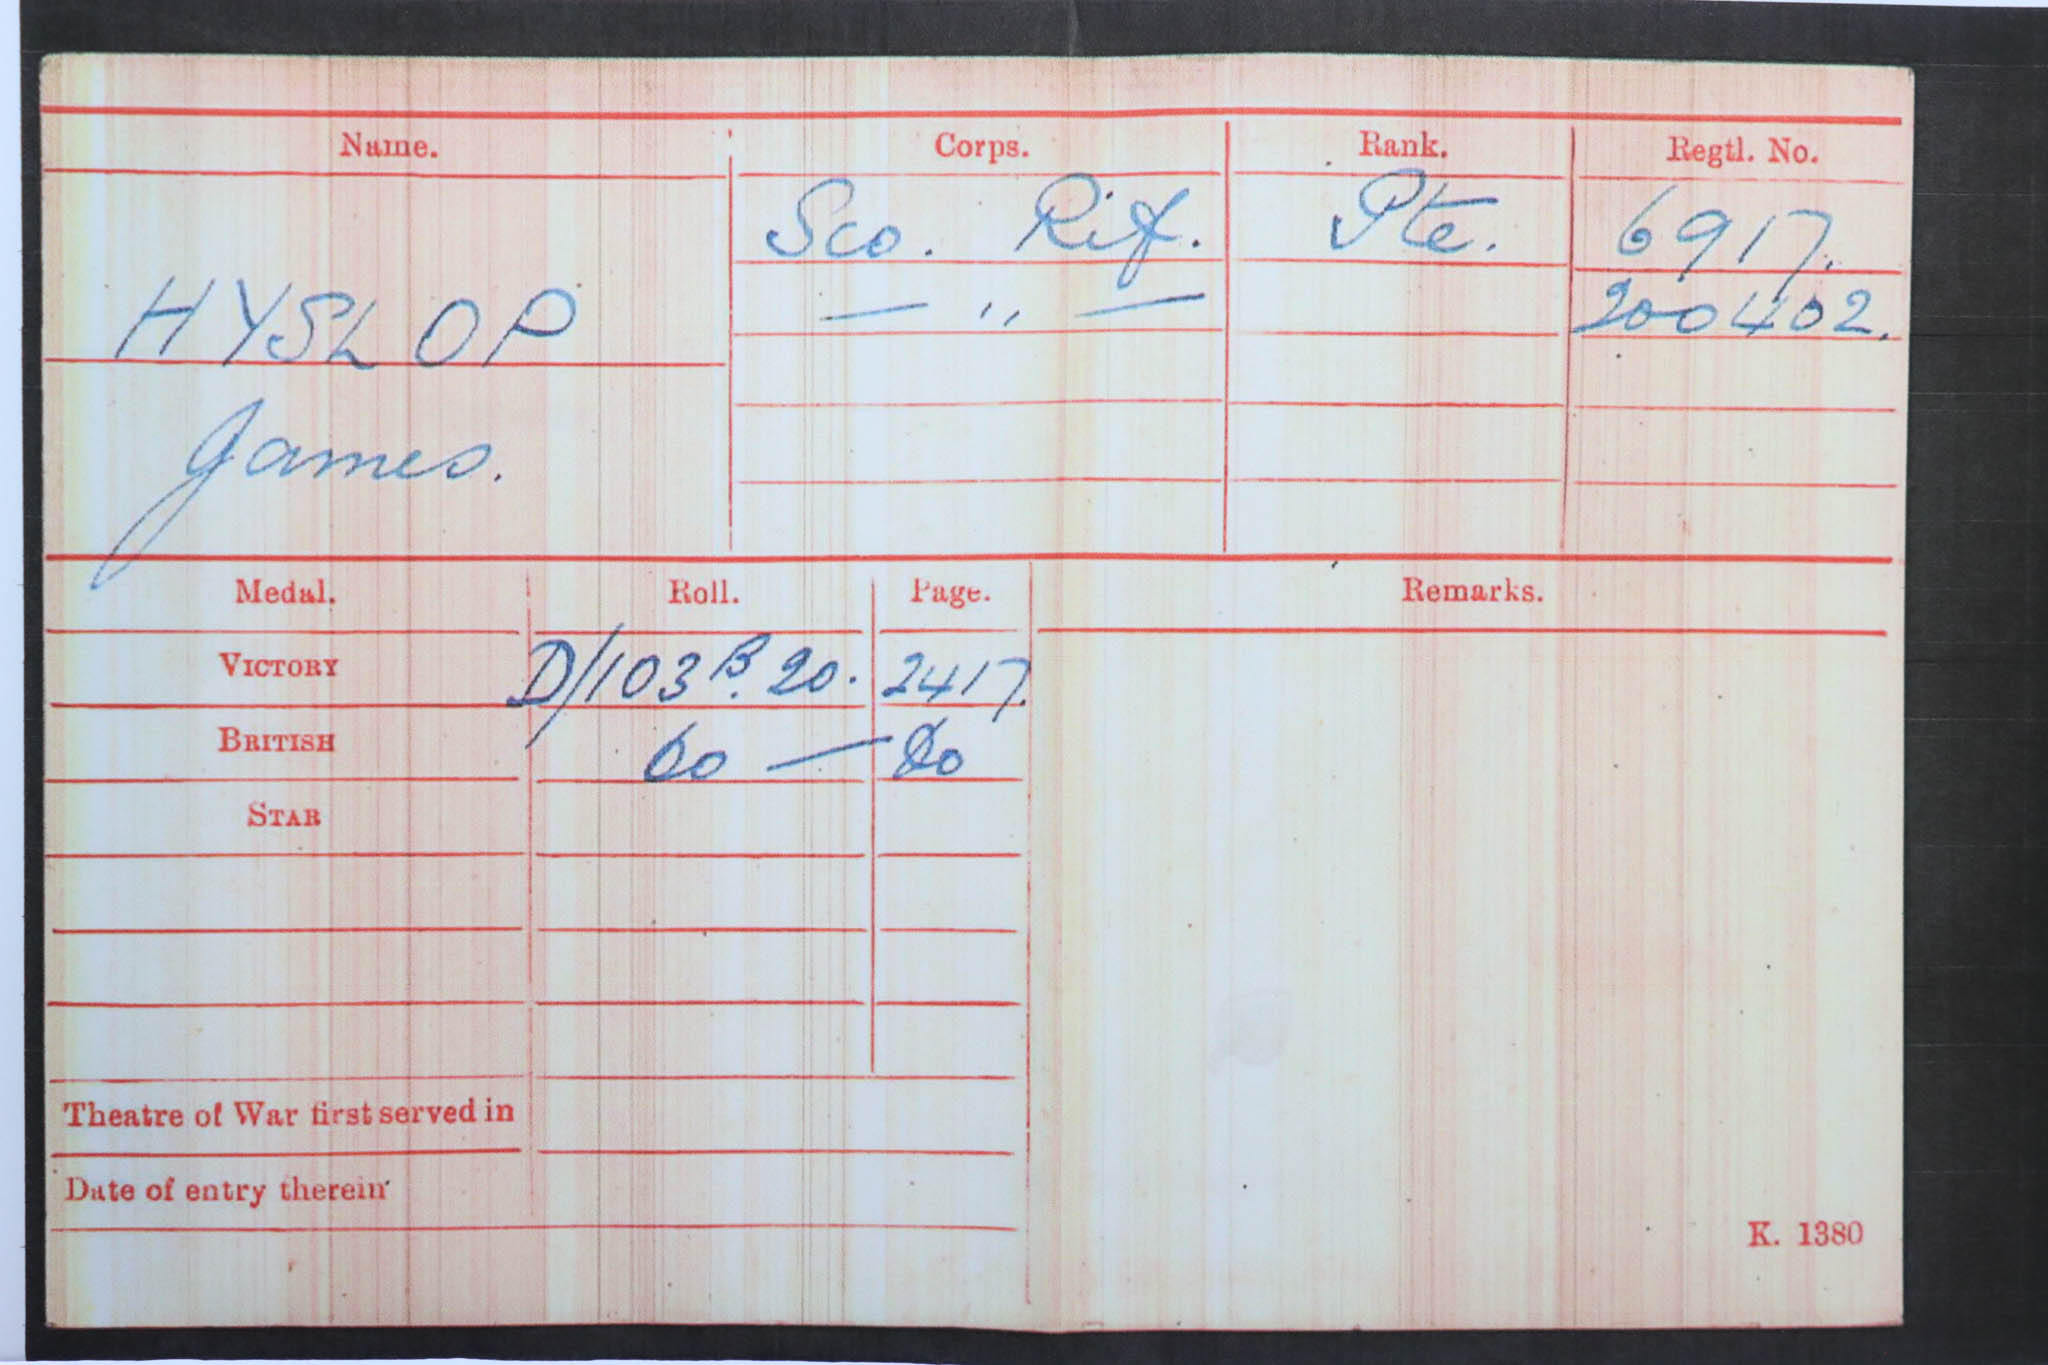 Name. Corps. Rank. Regtl. No.
Sco. Rif. Pte. 6917.
HYSLOP — " — 200402.
James.
Medal. Roll. Page. Remarks.
VICTORY D/103 B. 20. 2417.
BRITISH do — do
STAR
Theatre of War first served in
Date of entry therein
K. 1380